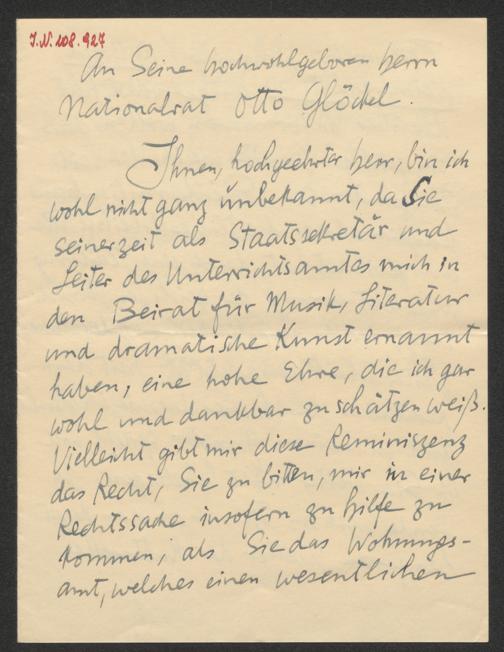 I.N. 108.927
An Seine hochwohlgeboren Herrn
Nationalrat Otto Glöckel.
Ihnen, hochgeehrter Herr, bin ich
wohl nicht ganz unbekannt, da Sie
seinerzeit als Staatssekretär und
Leiter des Unterrichtsamtes mich in
den Beirat für Musik, Literatur
und dramatische Kunst ernannt
haben, eine hohe Ehre, die ich gar
wohl und dankbar zu schätzen weiß.
Vielleicht gibt mir diese Reminiszenz
das Recht, Sie zu bitten, mir in einer
Rechtssache insofern zu Hilfe zu
kommen, als Sie das Wohnungs-
amt, welches einen wesentlichen